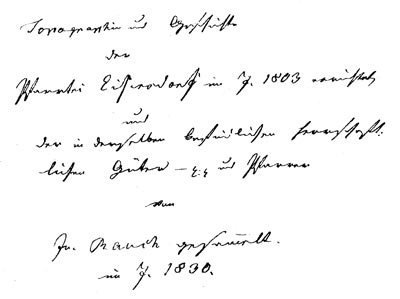 Topographie und Geschichte
der
Pfarrei Eilsendorf im J. 1803 errichtet,
und
der in derselben befindlichen herrschaft-
lichen Güter – und Pfarrer
von
Jr. Rauch gesam̄elt.
im J. 1830.